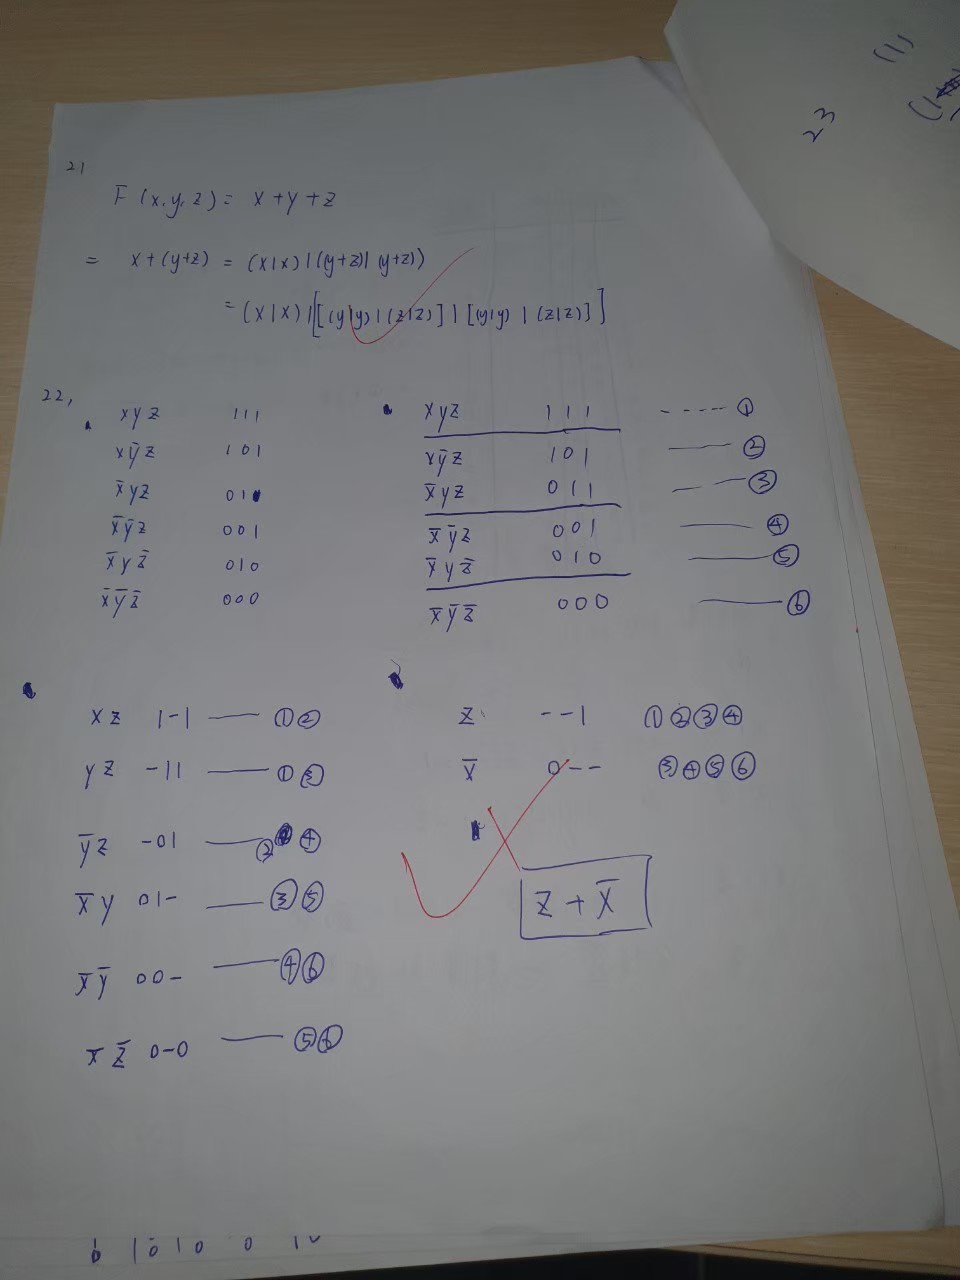 23
(1)
21
F(x,y,z) = x+y+z
= x+(y+z) = (x|x)|((y+z)|(y+z))
= (x|x)|[[(y|y)|(z|z)]|[(y|y)|(z|z)]]
22,
xyz 111
xȳz 101
x̄yz 011
x̄ȳz 001
x̄yz̄ 010
x̄ȳz̄ 000
xyz 111 ---- ①
xȳz 101 — ②
x̄yz 011 — ③
x̄ȳz 001 — ④
x̄yz̄ 010 — ⑤
x̄ȳz̄ 000 — ⑥
xz 1-1 — ①②
yz -11 — ①③
ȳz -01 — ②④
x̄y 01- — ③⑤
x̄ȳ 00- — ④⑥
x̄z̄ 0-0 — ⑤⑥
z --1 ①②③④
x̄ 0-- ③④⑤⑥
z + x̄